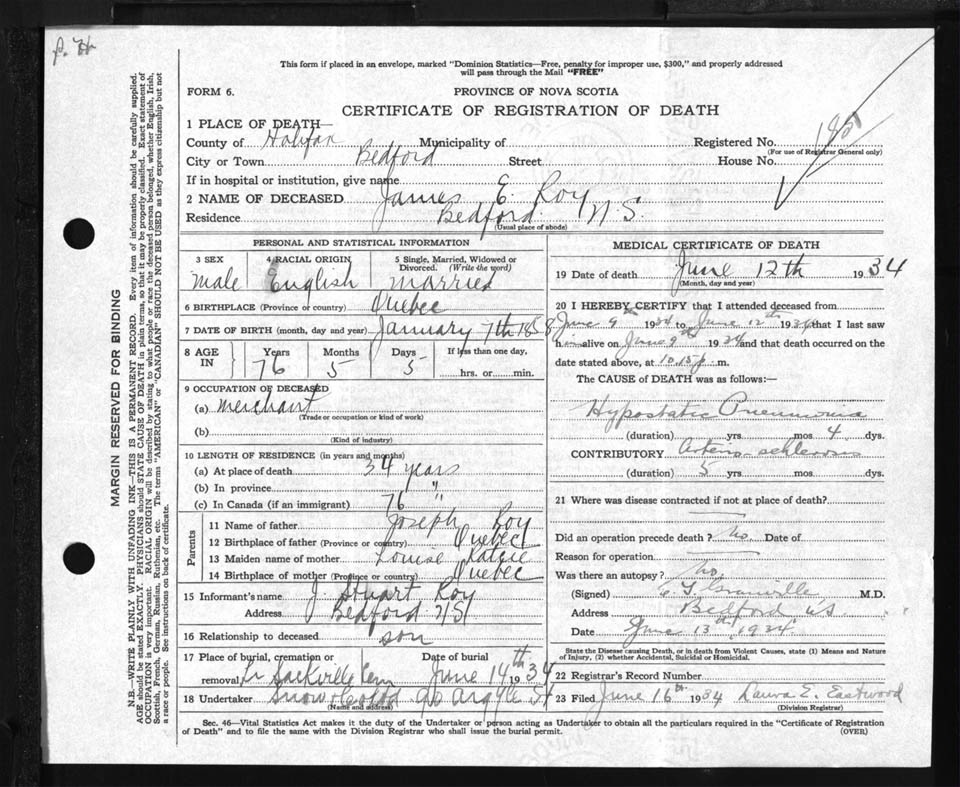 P. H.
This form if placed in an envelope, marked "Dominion Statistics—Free, penalty for improper use, $300," and properly addressed
will pass through the Mail "FREE"
FORM 6.
PROVINCE OF NOVA SCOTIA
CERTIFICATE OF REGISTRATION OF DEATH
1 PLACE OF DEATH
County of Halifax Municipality of Registered No.
(For use of Registrar General only)
City or Town Bedford Street House No.
If in hospital or institution, give name
2 NAME OF DECEASED James E. Roy
Residence Bedford N.S.
(Usual place of abode)
PERSONAL AND STATISTICAL INFORMATION
3 SEX 4 RACIAL ORIGIN 5 Single, Married, Widowed or
Divorced. (Write the word)
Male English Married
6 BIRTHPLACE (Province or country) Quebec
7 DATE OF BIRTH (month, day and year) January 7th 1858
8 AGE IN Years Months Days If less than one day,
76 5 5 hrs. or min.
9 OCCUPATION OF DECEASED
(a) merchant
(Trade or occupation or kind of work)
(b)
(Kind of industry)
10 LENGTH OF RESIDENCE (in years and months)
(a) At place of death 34 years
(b) In province "
(c) In Canada (if an immigrant) 76 "
Parents
11 Name of father Joseph Roy
12 Birthplace of father (Province or country) Quebec
13 Maiden name of mother Louise
14 Birthplace of mother (Province or country) Quebec
15 Informant's name J. Stuart Roy
Address Bedford N.S.
16 Relationship to deceased son
17 Place of burial, cremation or Date of burial
removal Lr Sackville Cem June 14th 1934
18 Undertaker Snow & Co 90 Argyle St
(Name and address)
MEDICAL CERTIFICATE OF DEATH
19 Date of death June 12th 1934
(Month, day and year)
20 I HEREBY CERTIFY that I attended deceased from
June 9th 1934 to June 12th 1934 that I last saw
him alive on June 9th 1934 and that death occurred on the
date stated above, at 10.15 p. m.
The CAUSE of DEATH was as follows:—
Hypostatic Pneumonia
(duration) yrs mos 4 dys.
CONTRIBUTORY Arterio-schlerosis
(duration) 5 yrs mos dys.
21 Where was disease contracted if not at place of death?
Did an operation precede death? No. Date of
Reason for operation
Was there an autopsy? No.
(Signed) Granville M.D.
Address Bedford N.S.
Date June 13th 1934
State the Disease causing Death, or in death from Violent Causes, state (1) Means and Nature
of Injury, (2) whether Accidental, Suicidal or Homicidal.
22 Registrar's Record Number
23 Filed June 16th 1934 Laura E. Eastwood
(Division Registrar)
Sec. 46—Vital Statistics Act makes it the duty of the Undertaker or person acting as Undertaker to obtain all the particulars required in the "Certificate of Registration
of Death" and to file the same with the Division Registrar who shall issue the burial permit. (OVER)
MARGIN RESERVED FOR BINDING
N.B.—WRITE PLAINLY WITH UNFADING INK—THIS IS A PERMANENT RECORD. Every item of information should be carefully supplied.
AGE should be stated EXACTLY. PHYSICIANS should STATE CAUSE OF DEATH in plain terms, so that it may be properly classified. Exact statement of
OCCUPATION is very important. RACIAL ORIGIN will be described by stating to what people or race the deceased person belonged, whether English, Irish,
Scottish, French, German, Russian, Ruthenian, etc. The terms "AMERICAN" or "CANADIAN" SHOULD NOT BE USED as they express citizenship but not
a race or people. See instructions on back of certificate.